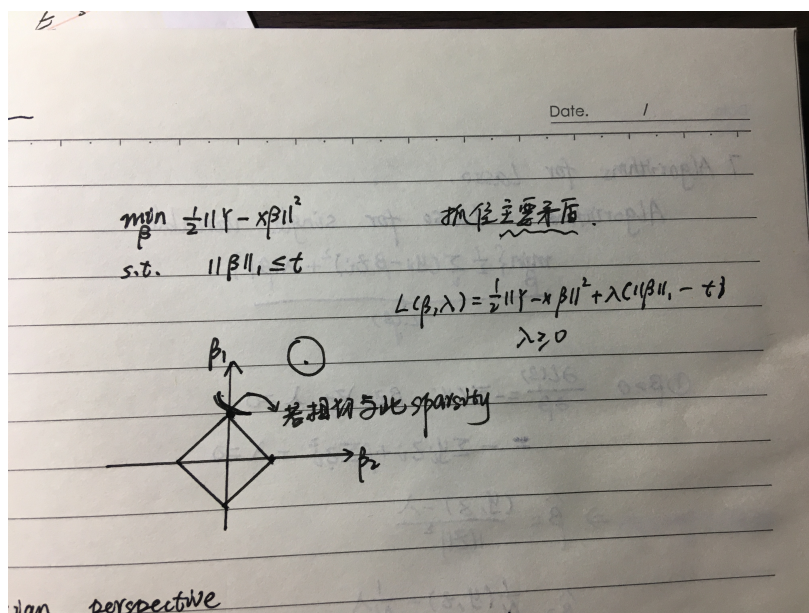 Date. /
min β ½||Y - xβ||²
抓住主要矛盾.
s.t. ||β||₁ ≤ t
L(β,λ) = ½||Y - xβ||² + λ(||β||₁ - t)
λ ≥ 0
β₁
若相切与此 sparsity
β₂
perspective